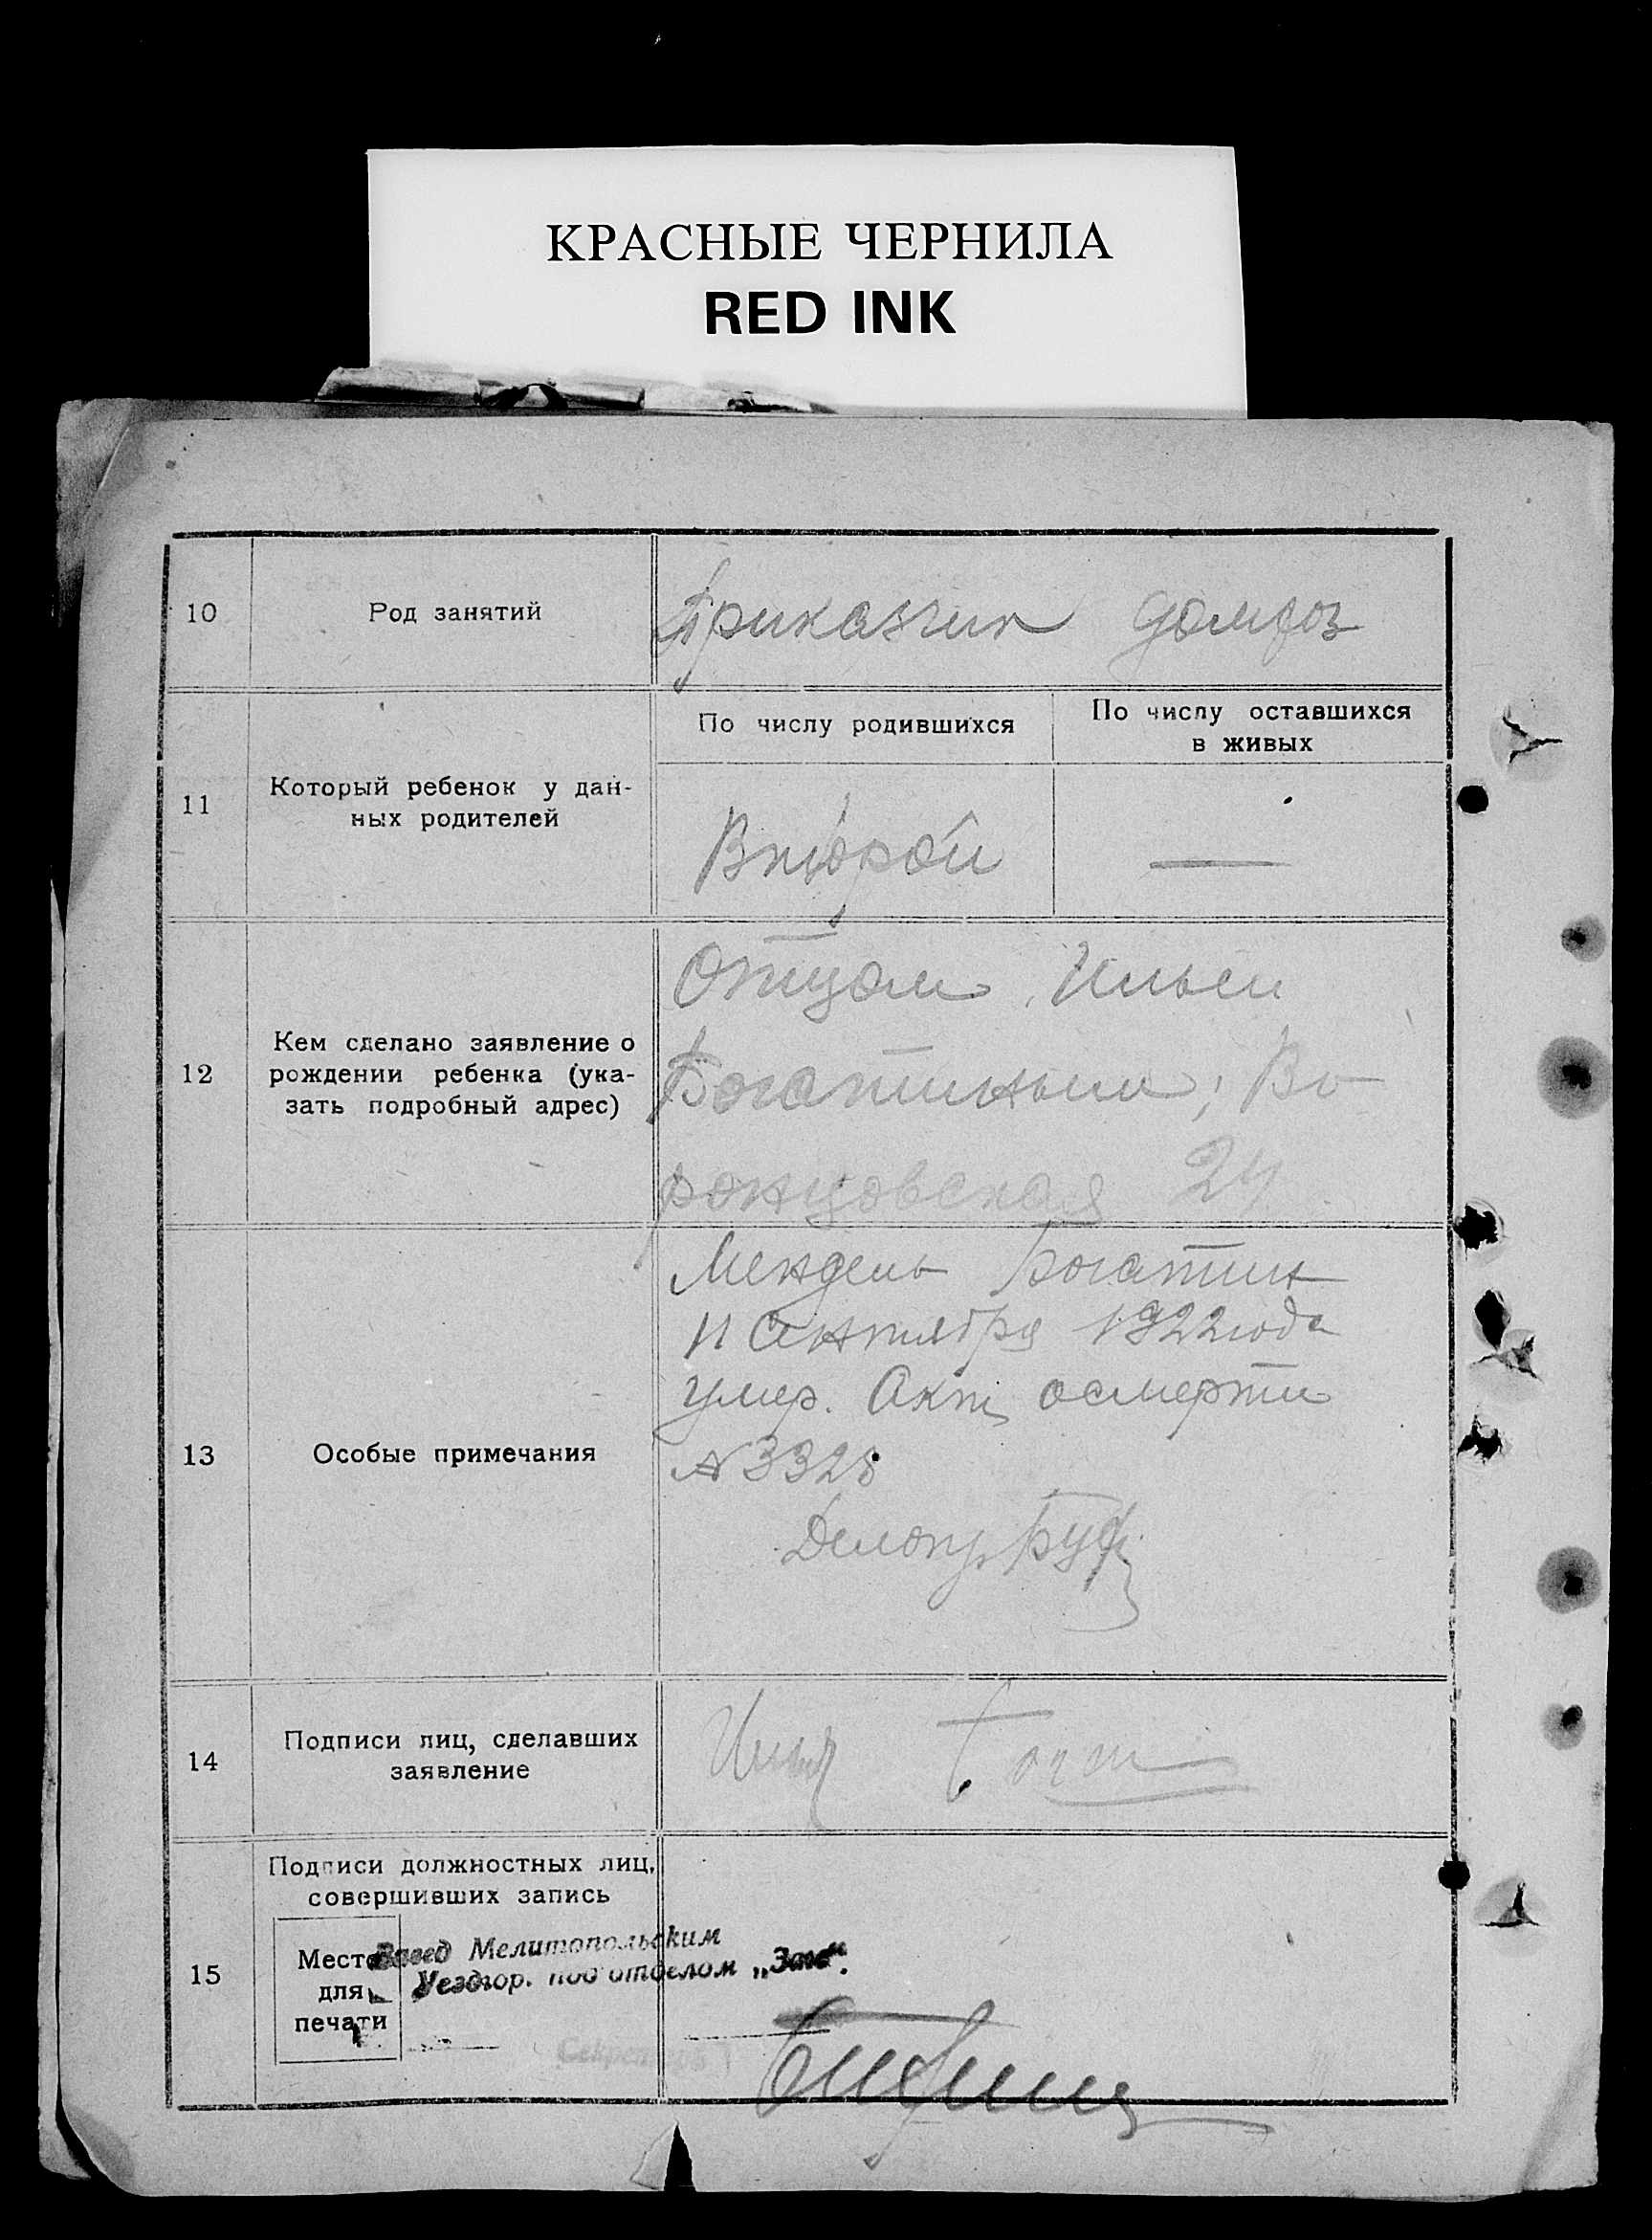 КРАСНЫЕ ЧЕРНИЛА
RED INK
10
Род занятий
Приказчик домхоз
11
Который ребенок у дан-
ных родителей
По числу родившихся
По числу оставшихся
в живых
Второй
—
12
Кем сделано заявление о
рождении ребенка (ука-
зать подробный адрес)
Отцом, Ильей
Богатиным; Во
ронцовская 24
13
Особые примечания
Мендель Богатин
11 Сентября 1922 года
умер. Акт о смерти
№ 3328
Делопр.
14
Подписи лиц, сделавших
заявление
Илья
15
Подписи должностных лиц,
совершивших запись
Место
для
печати
Завед Мелитопольским
Уездгор. подотделом „Загс“.
Секретарь